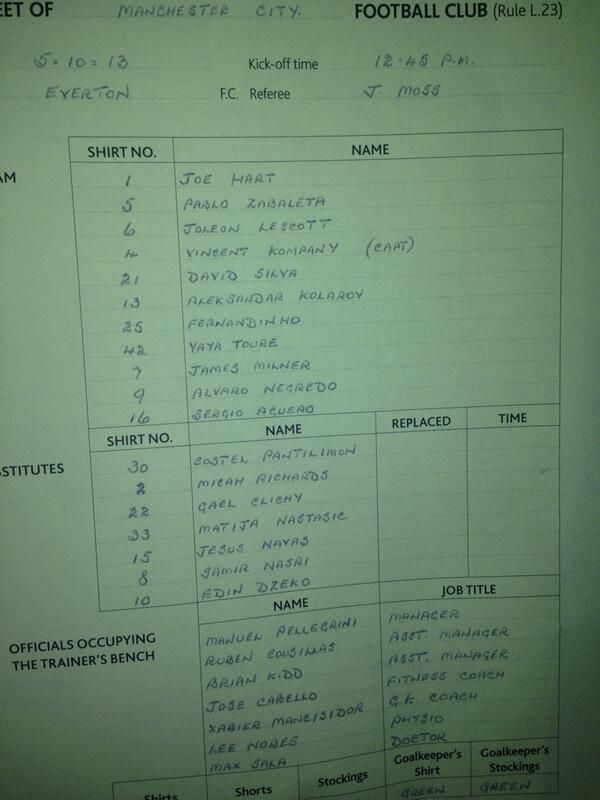 EET OF MANCHESTER CITY. FOOTBALL CLUB (Rule L.23)
5-10-13 Kick-off time 12.45 P.M.
EVERTON F.C. Referee J. MOSS
SHIRT NO. NAME
AM
1 JOE HART
5 PABLO ZABALETA
6 JOLEON LESCOTT
4 VINCENT KOMPANY (CAPT)
21 DAVID SILVA
13 ALEKSANDAR KOLAROV
25 FERNANDINHO
42 YAYA TOURE
7 JAMES MILNER
9 ALVARO NEGREDO
16 SERGIO AGUERO
SHIRT NO. NAME REPLACED TIME
STITUTES
30 COSTEL PANTILIMON
2 MICAH RICHARDS
22 GAEL CLICHY
33 MATIJA NASTASIC
15 JESUS NAVAS
8 SAMIR NASRI
10 EDIN DZEKO
NAME JOB TITLE
OFFICIALS OCCUPYING
THE TRAINER'S BENCH
MANUEL PELLEGRINI MANAGER
RUBEN COUSILLAS ASST. MANAGER
BRIAN KIDD ASST. MANAGER
JOSE CABELLO FITNESS COACH
XABIER MANCISIDOR G.K. COACH
LEE NOBES PHYSIO
MAX SALA DOCTOR
Shirts Shorts Stockings Goalkeeper's Shirt Goalkeeper's Stockings
GREEN GREEN